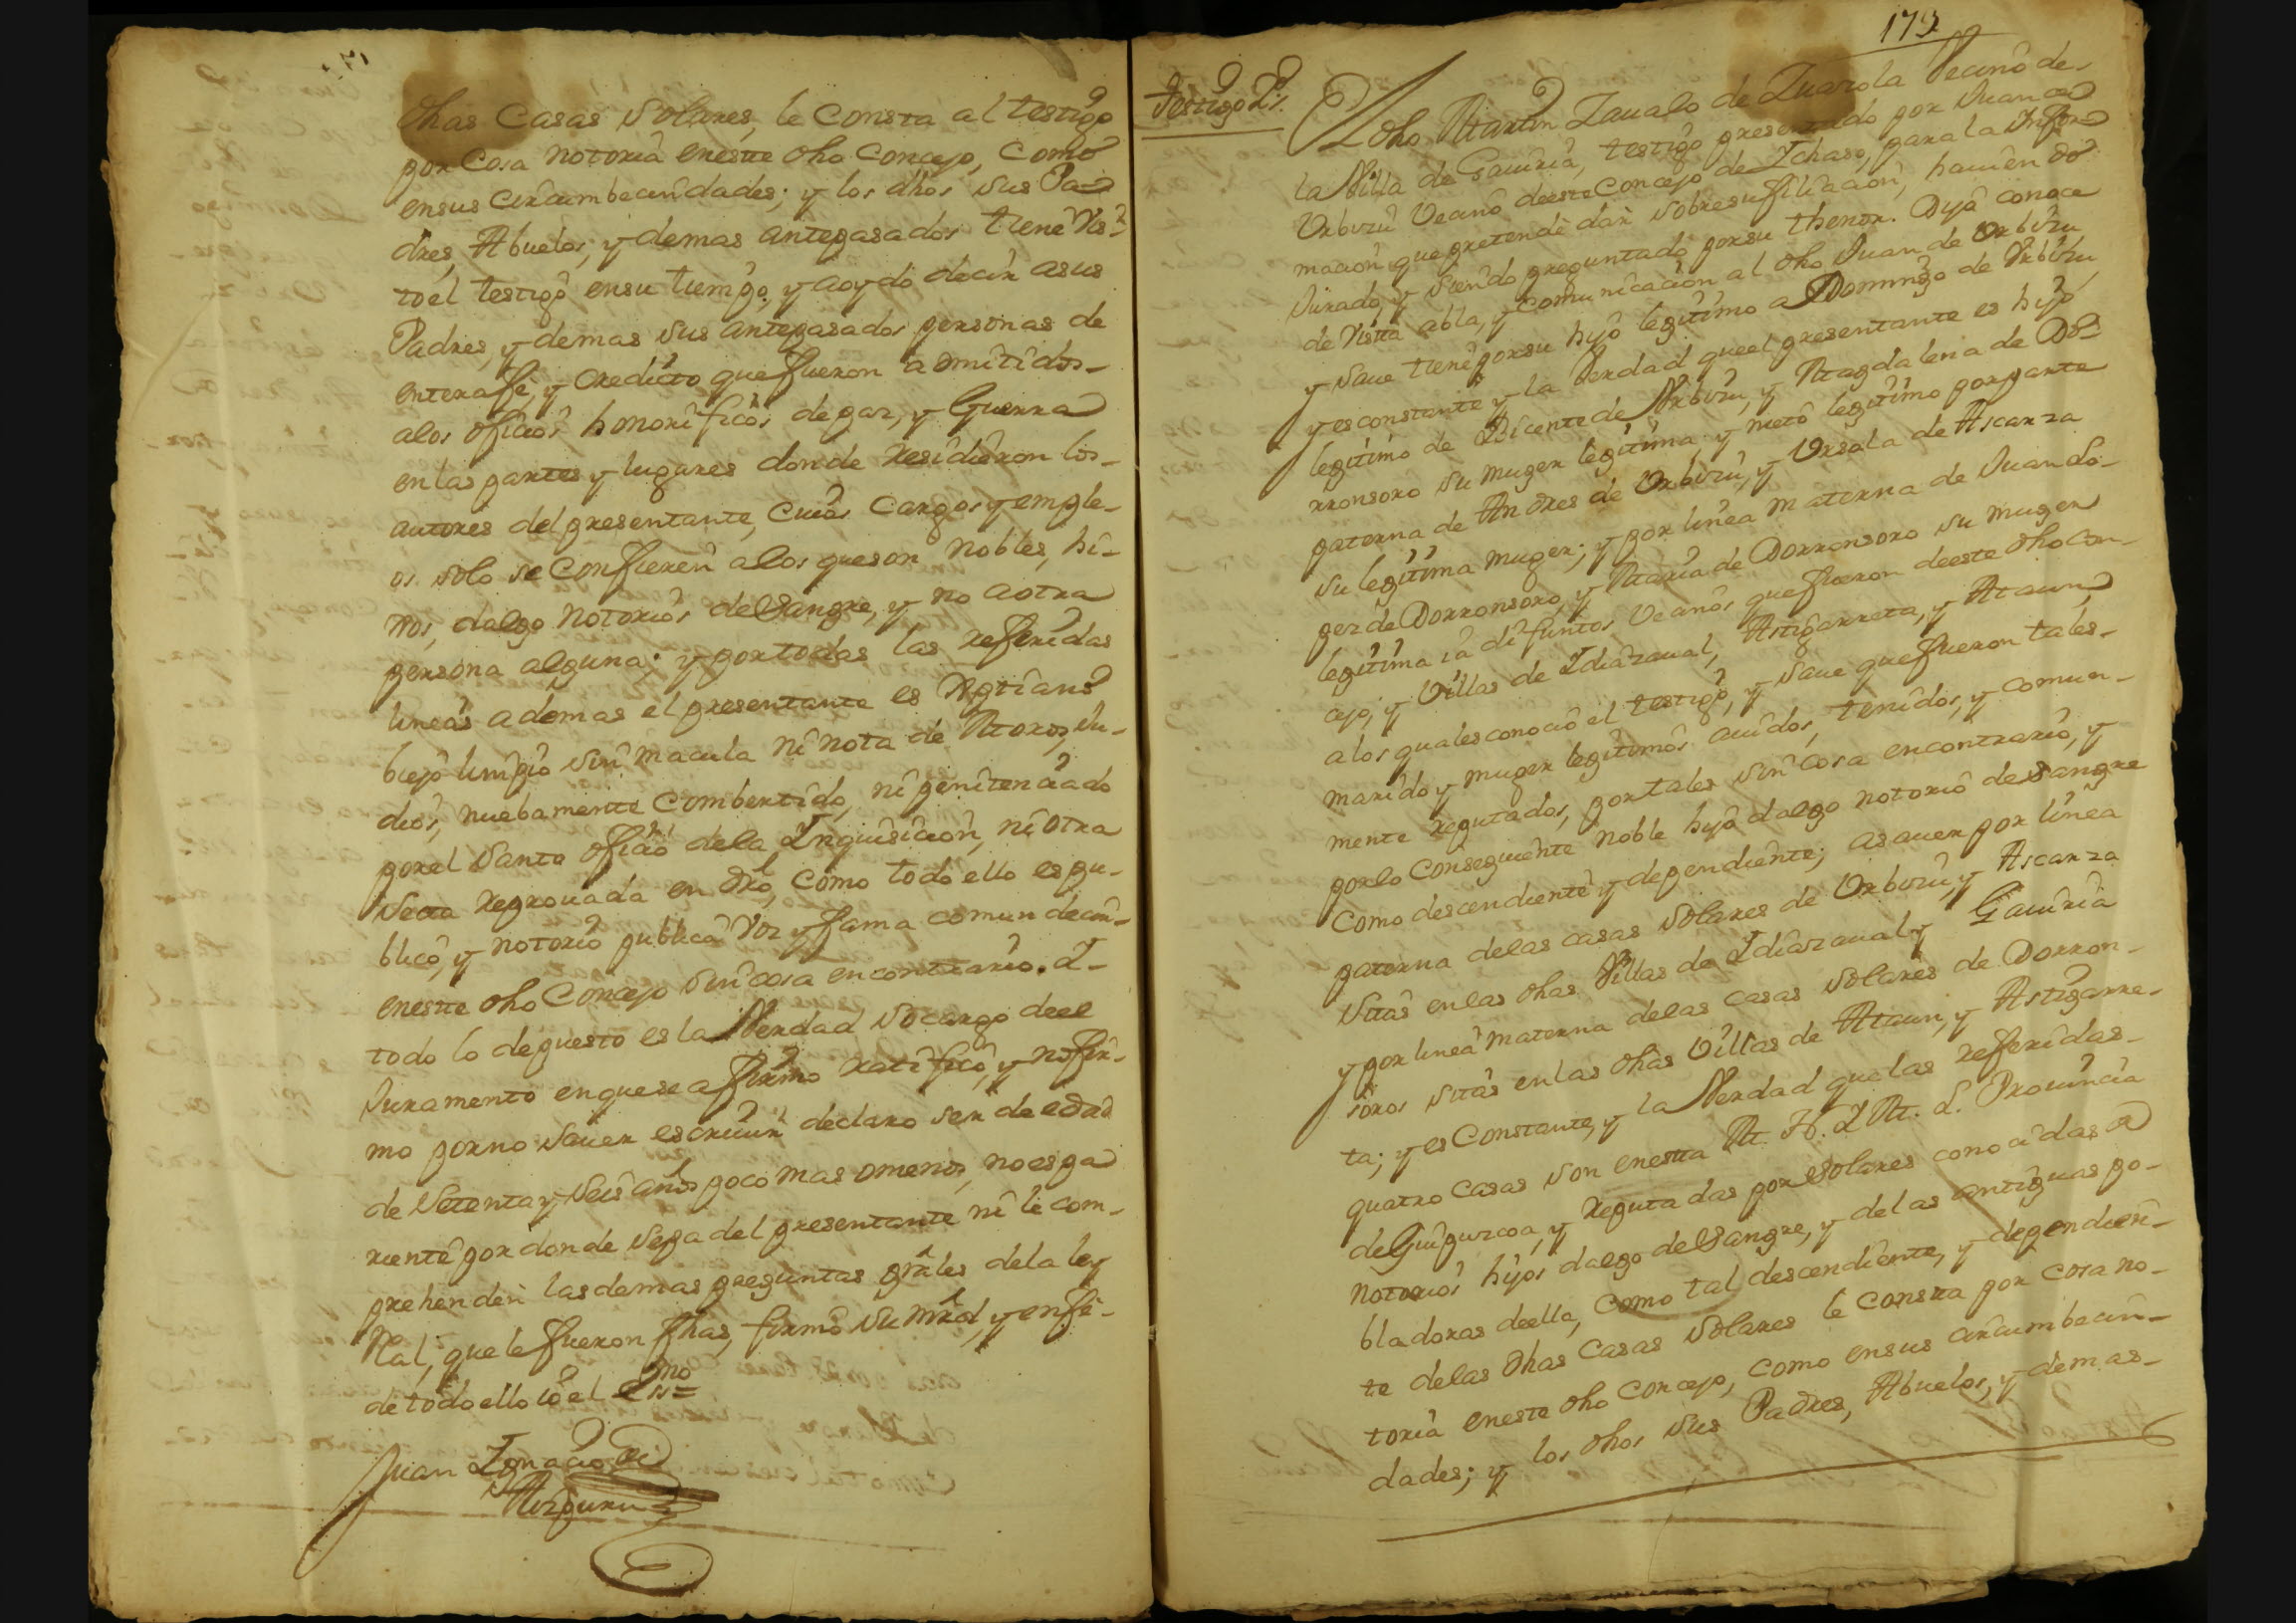 dhas Casas Solares, le Consta al testigo
por Cosa notoria eneste dho Concejo, Como
ensus Circumbecindades; y los dhos sus Pa-
dres, Abuelos, y demas antepasados tiene Vis-
to el testigo ensu tiempo, y a oydo decir asus
Padres, y demas sus antepasados personas de
entera fè, y Credito que fueron admitidos
alos oficios honorificos de paz, y Guerra
en las partes y lugares donde residieron los
autores del presentante, Cuios Cargos y emple-
os solo se Confieren alos que son nobles, hi-
xos, dalgo notorios de Sangre, y no aotra
persona alguna; y por todas las referidas
lineas ademas el presentante es Xptiano
biejo limpio sin macula ni nota de Moros, Ju-
dios, nuebamente Combertido, ni penitenciado
por el Santo oficio dela Inquisicion, ni otra
Secta reprouada en dro, Como todo ello es pu-
blico, y notorio publica Voz y fama comun decir
eneste dho Concejo sin cosa en contrario. I
todo lo depuesto es la Verdad so cargo de el
Juramento en que se afirmo ratifico, y no fir-
mo por no sauer escriuir declaro ser de edad
de Setenta y Seis años poco mas omenos, no es pa-
riente por donde sepa del presentante ni le com-
prehenden las demas preguntas grâles dela ley
Ral, que le fueron fhas, firmo su mrd, y en fè
de todo ello io el Ssno=
Juan Ignacio de
Aizpuru
179
Testigo 2º.
El dho Martin Zaualo de Zuazola Vecino de
la Villa de Gauiria, testigo presentado por Juan de
Urbizu Vecino de este Concejo de Ichaso, para la Infor-
macion que pretende dar sobre su filiacion, hauiendo
Jurado, y siendo preguntado por su thenor. Dijo conoce
de Vista abla, y Comunicacion al dho Juan de Urbizu
y Saue tiene por su hijo legitimo a Domingo de Urbizu
y es constante y la Verdad que el presentante es hijo
legitimo de Vicente de Urbizu, y Magdalena de Do-
rronsoro su muger legitima, y nieto legitimo por parte
paterna de Andres de Urbizu, y Ursola de Ascarza
su legitima muger; y por linea materna de Juan Lo-
pez de Dorronsoro, y Maria de Dorronsoro su muger
legitima ia difuntos Vecinos que fueron de este dho Con-
cejo, y Villas de Idiazaual, Astigarreta, y Ataun,
a los quales conocio el testigo, y saue que fueron tales
marido y muger legitimos auidos, tenidos, y comun-
mente reputados, por tales sin cosa en contrario, y
por lo Conseguiente noble hijo dalgo notorio de Sangre
Como descendiente y dependiente; asauer por linea
paterna delas casas solares de Urbizu, y Ascarza
Sitas en las dhas Villas de Idiazaual y Gauiria
y por linea materna delas casas solares de Dorron-
soros sitas en las dhas Villas de Ataun, y Astigarre-
ta; y es Constante, y la Verdad que las referidas
quatro Casas son enesta M. N. I M. L. Prouincia
de Guipuzcoa, y reputadas por solares conocidas de
notorios hijos dalgo de Sangre, y delas antiguas po-
bladoras de ella, Como tal descendiente, y dependien-
te delas dhas Casas Solares le Consta por cosa no-
toria eneste dho Concejo, como ensus circumbecin-
dades; y los dhos sus Padres, Abuelos, y demas